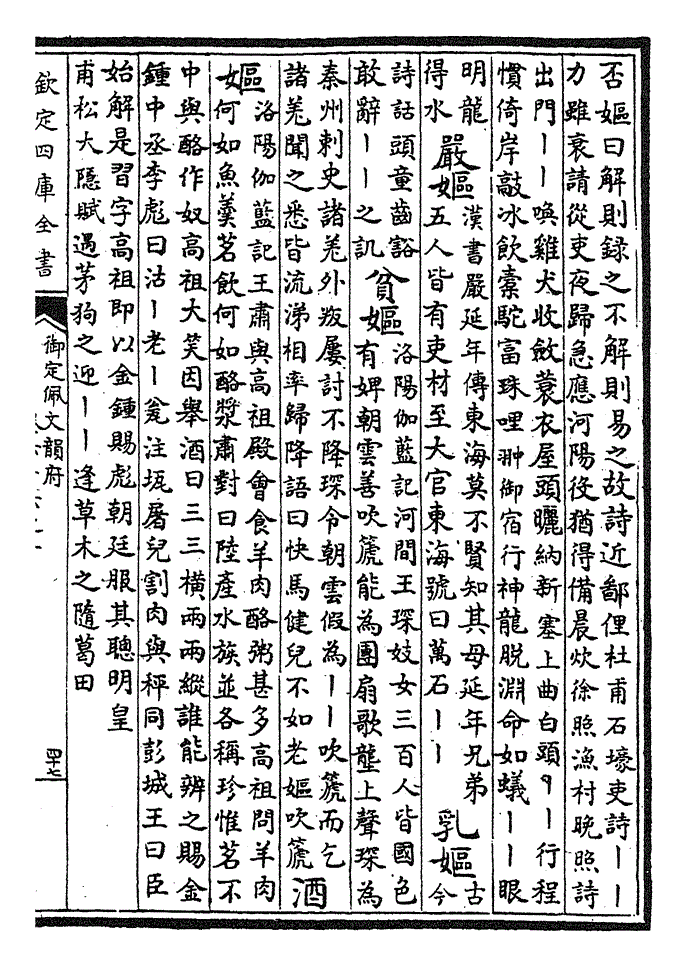 否嫗曰解則錄之不解則易之故詩近鄙俚杜甫石壕吏詩｜｜
力雖衰請從吏夜歸急應河陽役猶得備晨炊徐照漁村晚照詩
出門｜｜喚雞犬收斂蓑衣屋頭曬納新塞上曲白頭｜行程
慣倚岸敲冰飲橐駝富珠哩翀御宿行神龍脫淵命如蟻｜｜眼
明龍
得水
嚴嫗
漢書嚴延年傳東海莫不賢知其母延年兄弟
五人皆有吏材至大官東海號曰萬石｜｜
乳嫗
古
今
詩話頭童齒豁
敢辭｜｜之譏
貧嫗
洛陽伽藍記河間王琛妓女三百人皆國色
有婢朝雲善吹篪能為團扇歌壟上聲琛為
秦州刺史諸羌外叛屢討不降琛令朝雲假為｜｜吹篪而乞
諸羌聞之悉皆流涕相率歸降語曰快馬健兒不如老嫗吹篪
酒
嫗
洛陽伽藍記王肅與高祖殿會食羊肉酪粥甚多高祖問羊肉
何如魚羹茗飲何如酪漿肅對曰陸產水族並各稱珍惟茗不
中與酪作奴高祖大笑因舉酒曰三三橫兩兩縱誰能辨之賜金
鍾中丞李彪曰沽｜老｜瓮注瓨屠兒割肉與秤同彭城王曰臣
始解是習字高祖即以金鍾賜彪朝廷服其聰明皇
甫松大隱賦遇茅狗之迎｜｜逢草木之隨葛田
欽定四庫全書
御定佩文韻府
四十七